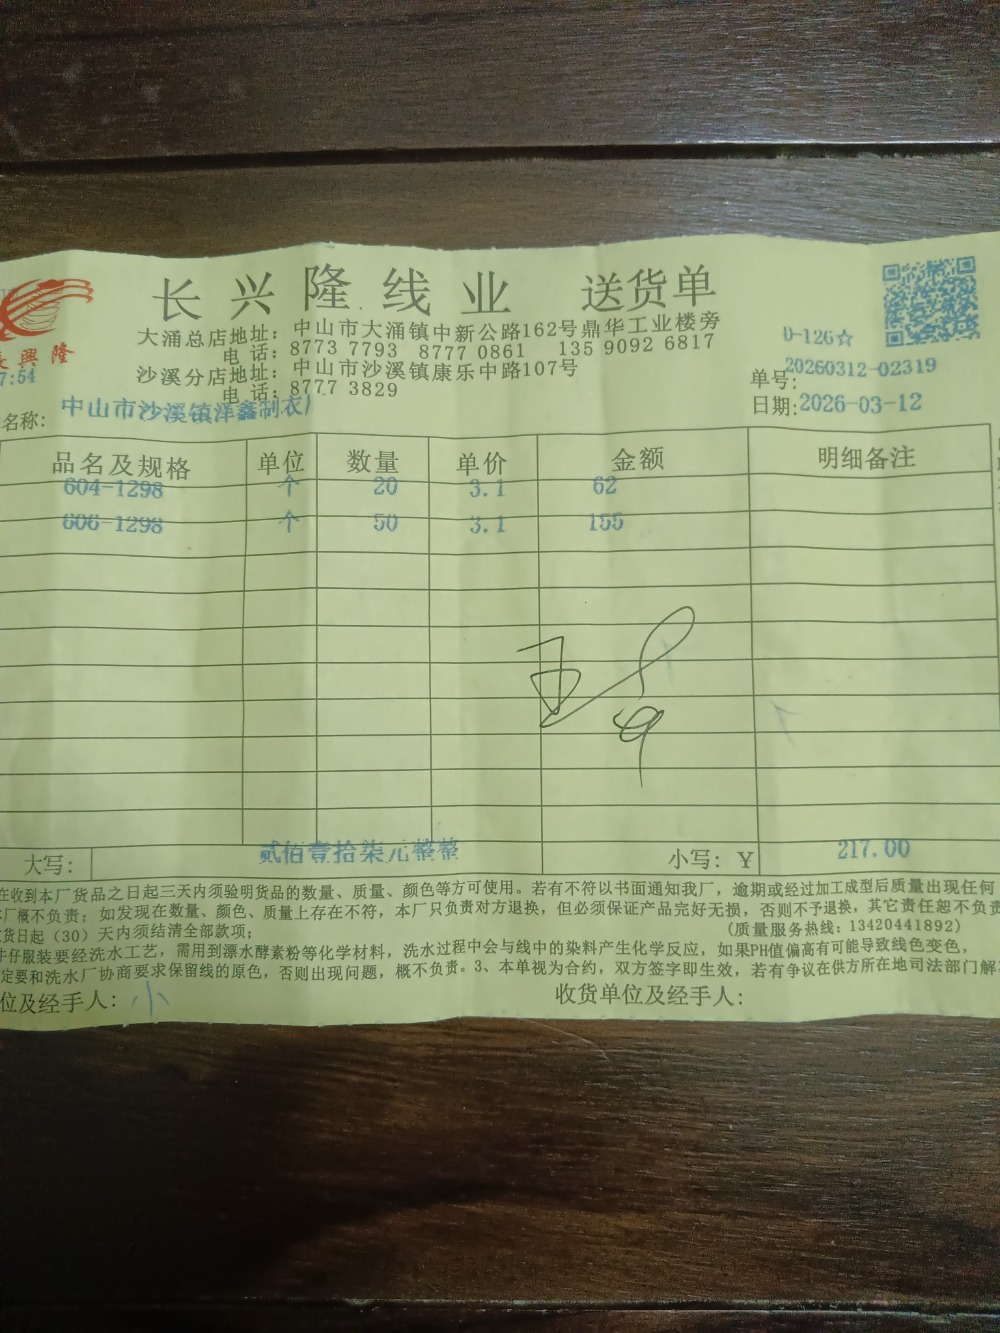 长兴隆线业 送货单
大涌总店地址：中山市大涌镇中新公路162号鼎华工业楼旁
电 话：8773 7793 8777 0861 135 9092 6817
沙溪分店地址：中山市沙溪镇康乐中路107号
电 话：8777 3829
長興隆
7:54
0-126☆
单号：20260312-02319
日期：2026-03-12
名称：中山市沙溪镇洋鑫制衣厂
品名及规格 单位 数量 单价 金额 明细备注
604-1298 个 20 3.1 62
606-1298 个 50 3.1 155
大写： 贰佰壹拾柒元整整 小写：￥ 217.00
在收到本厂货品之日起三天内须验明货品的数量、质量、颜色等方可使用。若有不符以书面通知我厂，逾期或经过加工成型后质量出现任何
厂概不负责；如发现在数量、颜色、质量上存在不符，本厂只负责对方退换，但必须保证产品完好无损，否则不予退换，其它责任恕不负责
货日起（30）天内须结清全部款项； （质量服务热线：13420441892）
牛仔服装要经洗水工艺，需用到漂水酵素粉等化学材料，洗水过程中会与线中的染料产生化学反应，如果PH值偏高有可能导致线色变色，
定要和洗水厂协商要求保留线的原色，否则出现问题，概不负责。3、本单视为合约，双方签字即生效，若有争议在供方所在地司法部门解
位及经手人：小 收货单位及经手人：